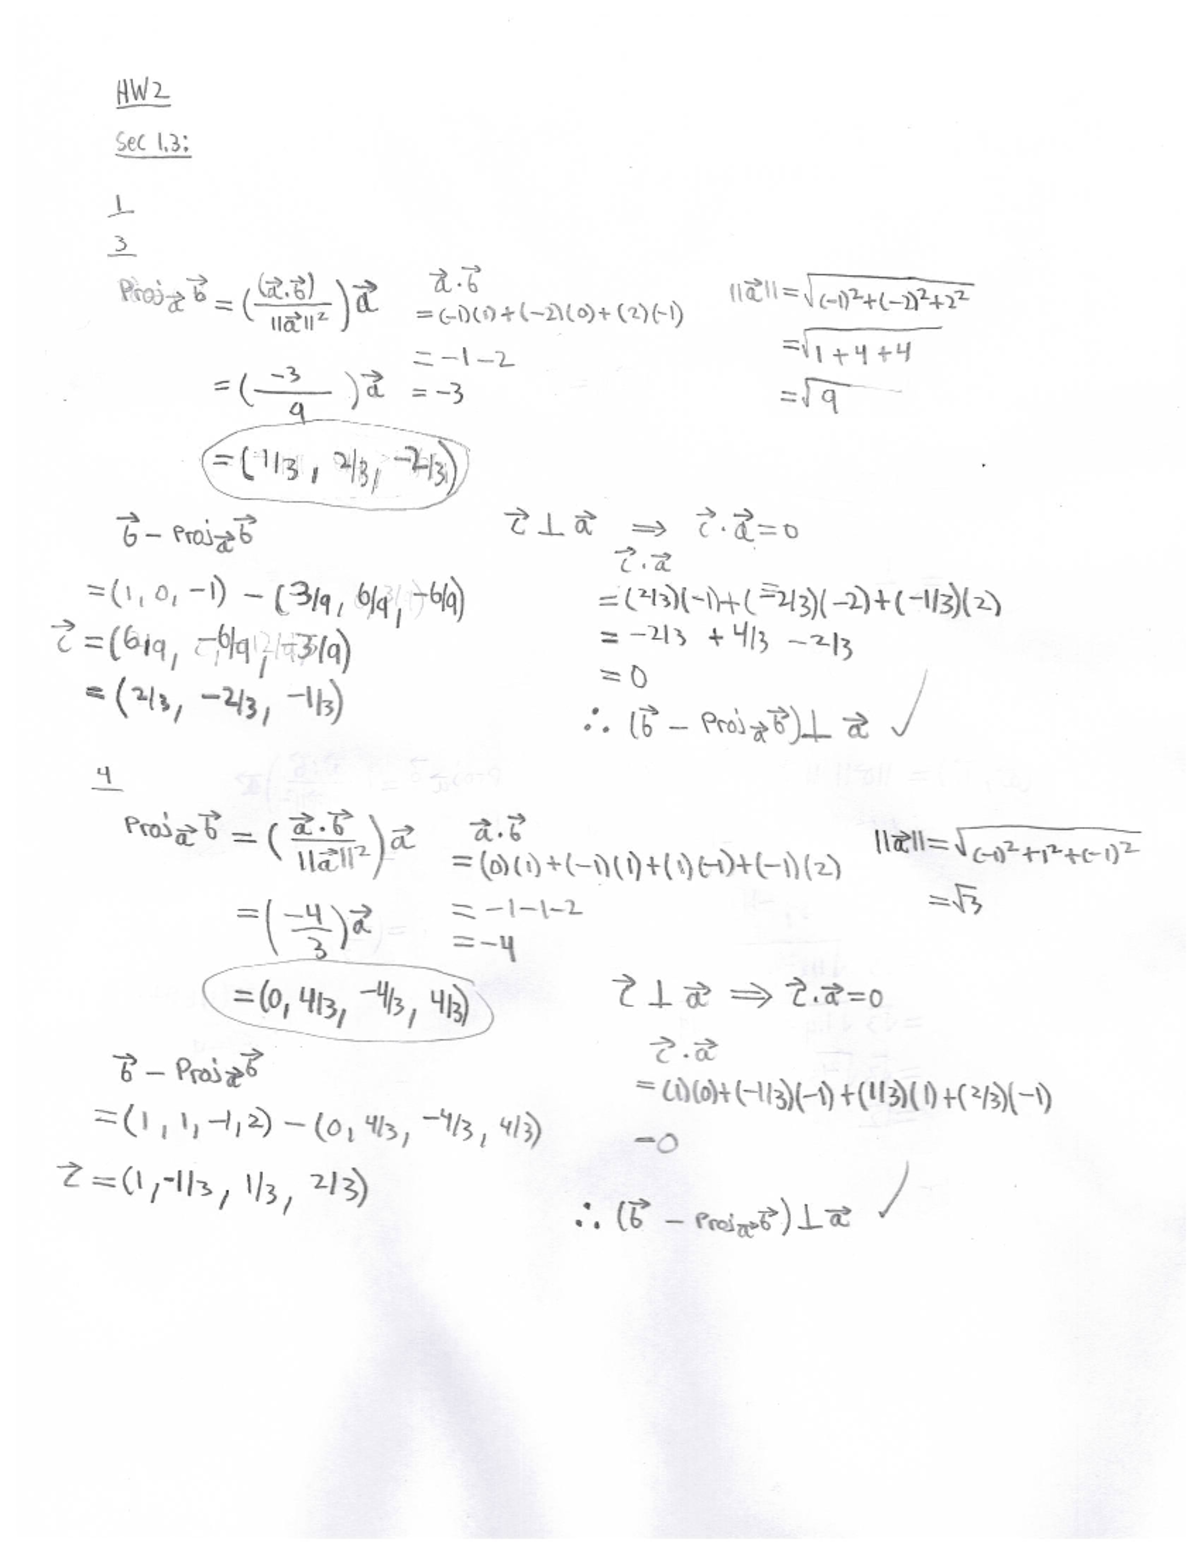 HW2
Sec 1.3:
1
3
Proj_a⃗ b⃗ = ((a⃗·b⃗)/||a⃗||²) a⃗
= (-3/9) a⃗
= (1/3, 2/3, -2/3)
a⃗·b⃗
= (-1)(1)+(-2)(0)+(2)(-1)
= -1-2
= -3
||a⃗|| = √((-1)²+(-2)²+2²)
= √(1+4+4)
= √9
b⃗ - Proj_a⃗ b⃗
= (1, 0, -1) - (3/9, 6/9, -6/9)
c⃗ = (6/9, -6/9, -3/9)
= (2/3, -2/3, -1/3)
c⃗ ⊥ a⃗ ⟹ c⃗·a⃗ = 0
c⃗·a⃗
= (2/3)(-1)+(-2/3)(-2)+(-1/3)(2)
= -2/3 + 4/3 - 2/3
= 0
∴ (b⃗ - Proj_a⃗ b⃗) ⊥ a⃗ ✓
4
Proj_a⃗ b⃗ = (a⃗·b⃗/||a⃗||²) a⃗
= (-4/3) a⃗
= (0, 4/3, -4/3, 4/3)
a⃗·b⃗
= (0)(1)+(-1)(1)+(1)(-1)+(-1)(2)
= -1-1-2
= -4
||a⃗|| = √((-1)²+1²+(-1)²)
= √3
b⃗ - Proj_a⃗ b⃗
= (1, 1, -1, 2) - (0, 4/3, -4/3, 4/3)
c⃗ = (1, -1/3, 1/3, 2/3)
c⃗ ⊥ a⃗ ⟹ c⃗·a⃗ = 0
c⃗·a⃗
= (1)(0)+(-1/3)(-1)+(1/3)(1)+(2/3)(-1)
= 0
∴ (b⃗ - Proj_a⃗ b⃗) ⊥ a⃗ ✓